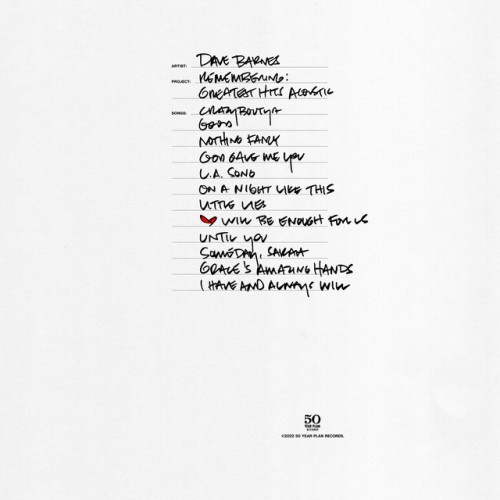 ARTIST: DAVE BARNES
PROJECT: REMEMBERING:
GREATEST HITS ACOUSTIC
SONGS: CRAZYBOUTYA
GOOD
NOTHING FANCY
GOD GAVE ME YOU
L.A. SONG
ON A NIGHT LIKE THIS
LITTLE LIES
❤ WILL BE ENOUGH FOR US
UNTIL YOU
SOMEDAY, SARAH
GRACE'S AMAZING HANDS
I HAVE AND ALWAYS WILL
50
YEAR PLAN
RECORDS
©2022 50 YEAR PLAN RECORDS.